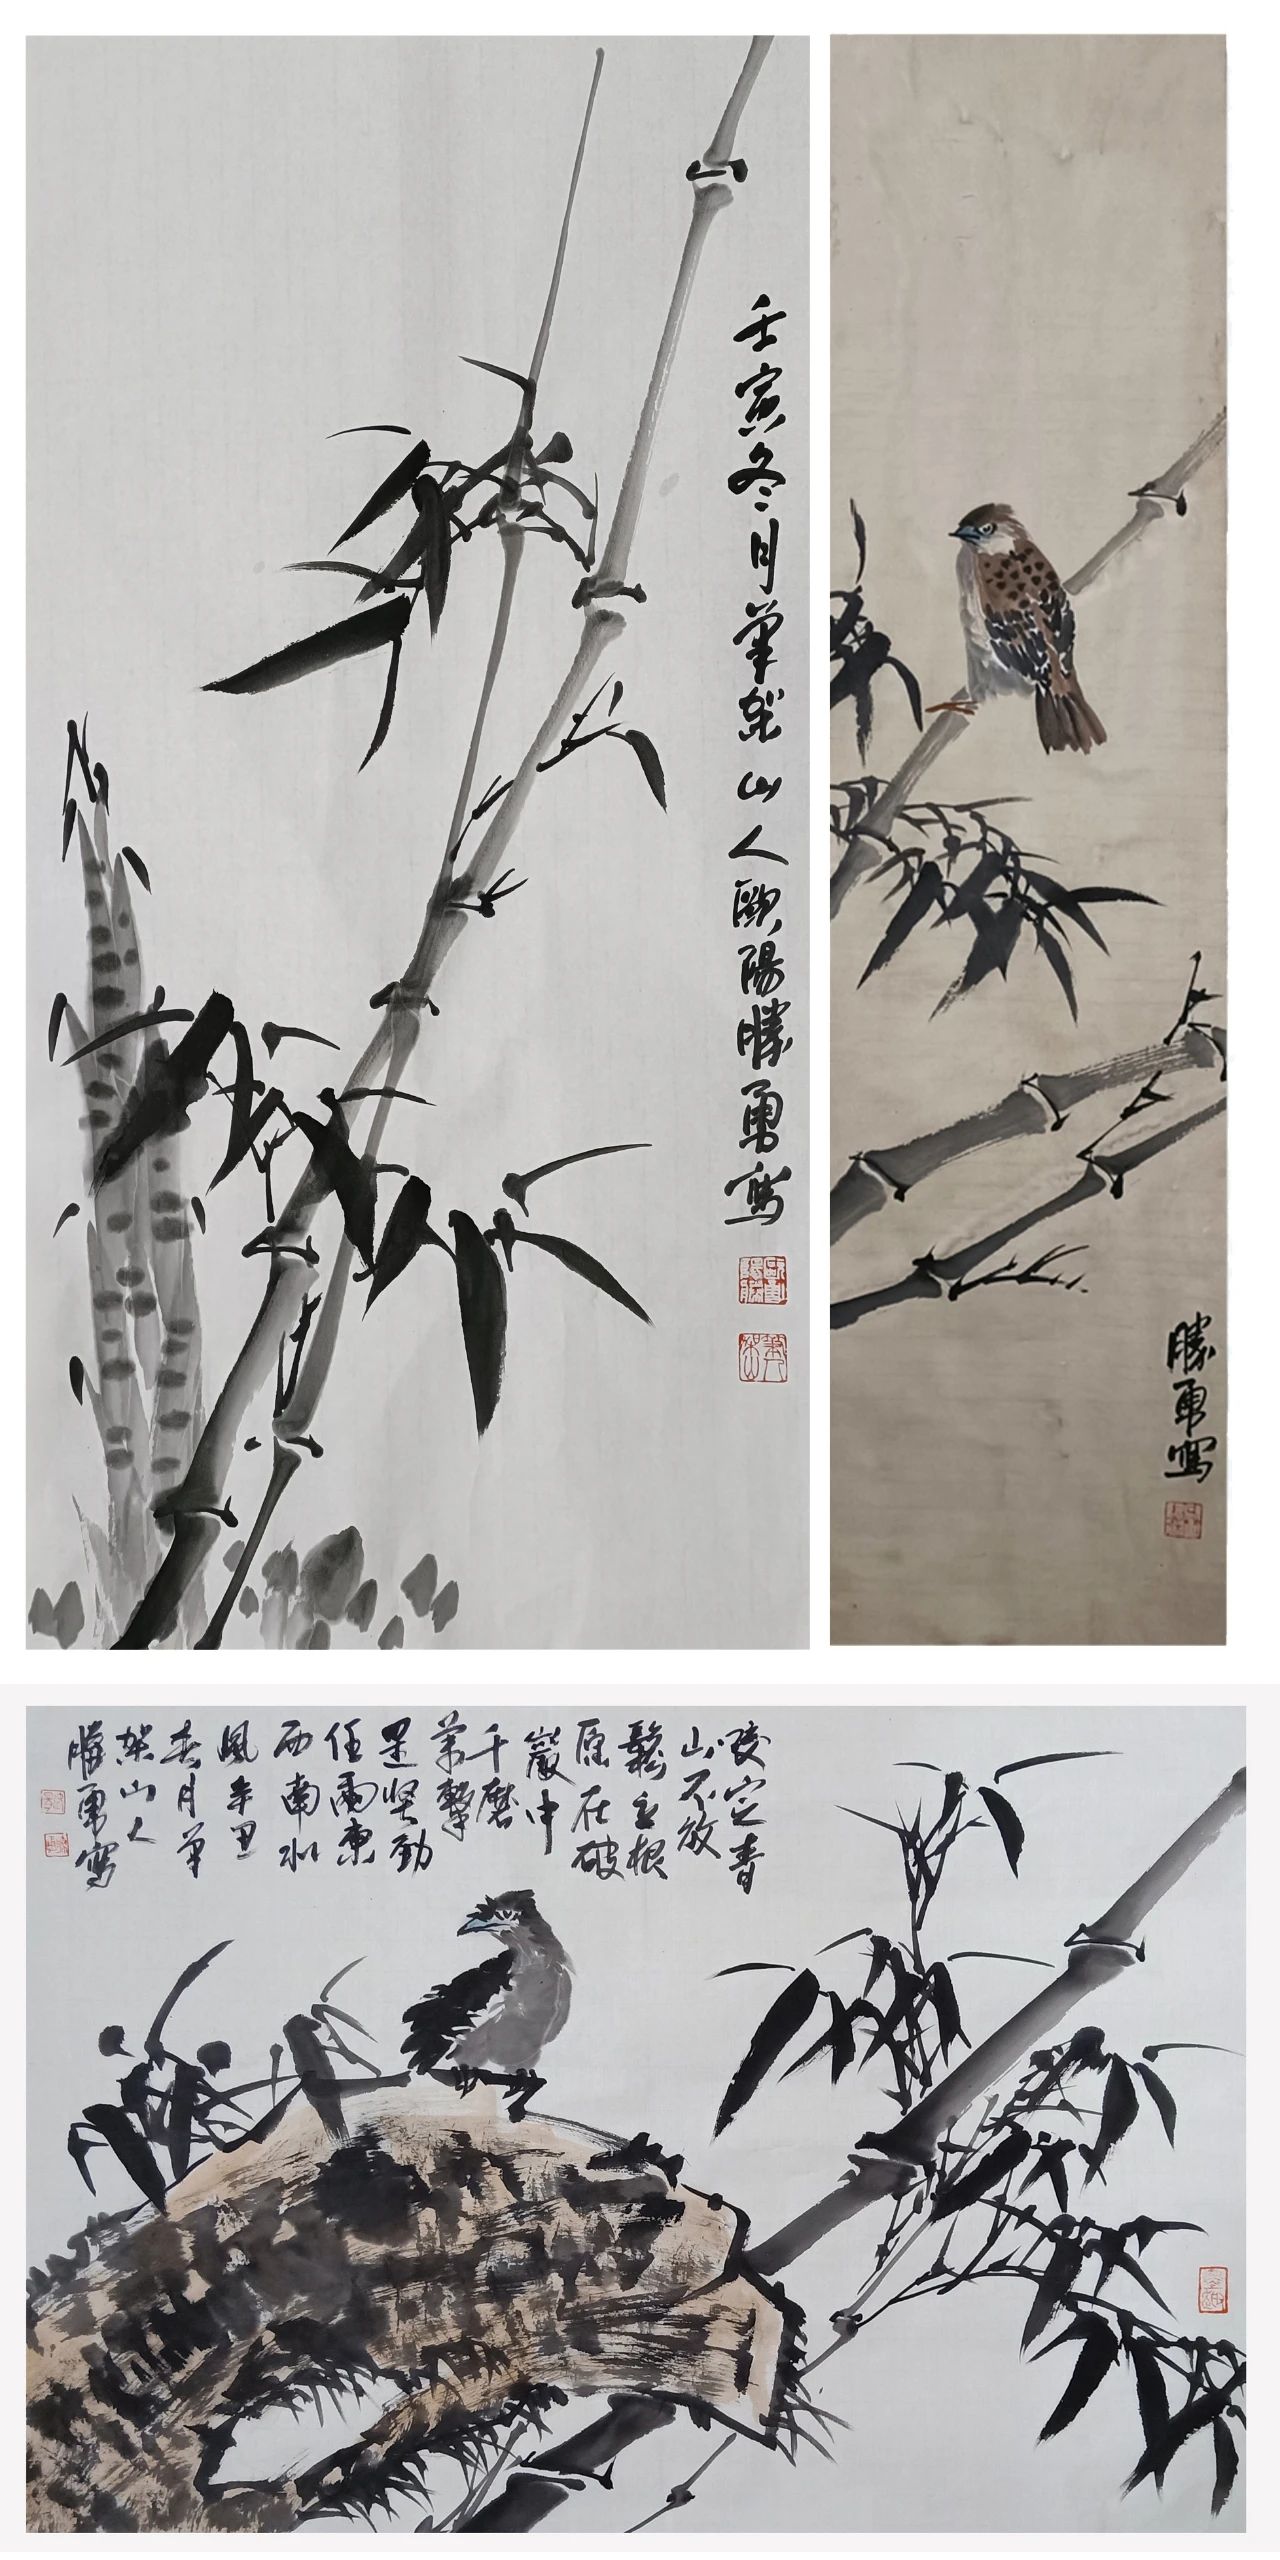 壬寅冬月筆架山人歐陽勝勇寫
勝勇寫
咬定青
山不放
鬆立根
原在破
巖中
千磨
萬擊
還堅勁
任爾東
西南北
風辛丑
春月筆
架山人
勝勇寫